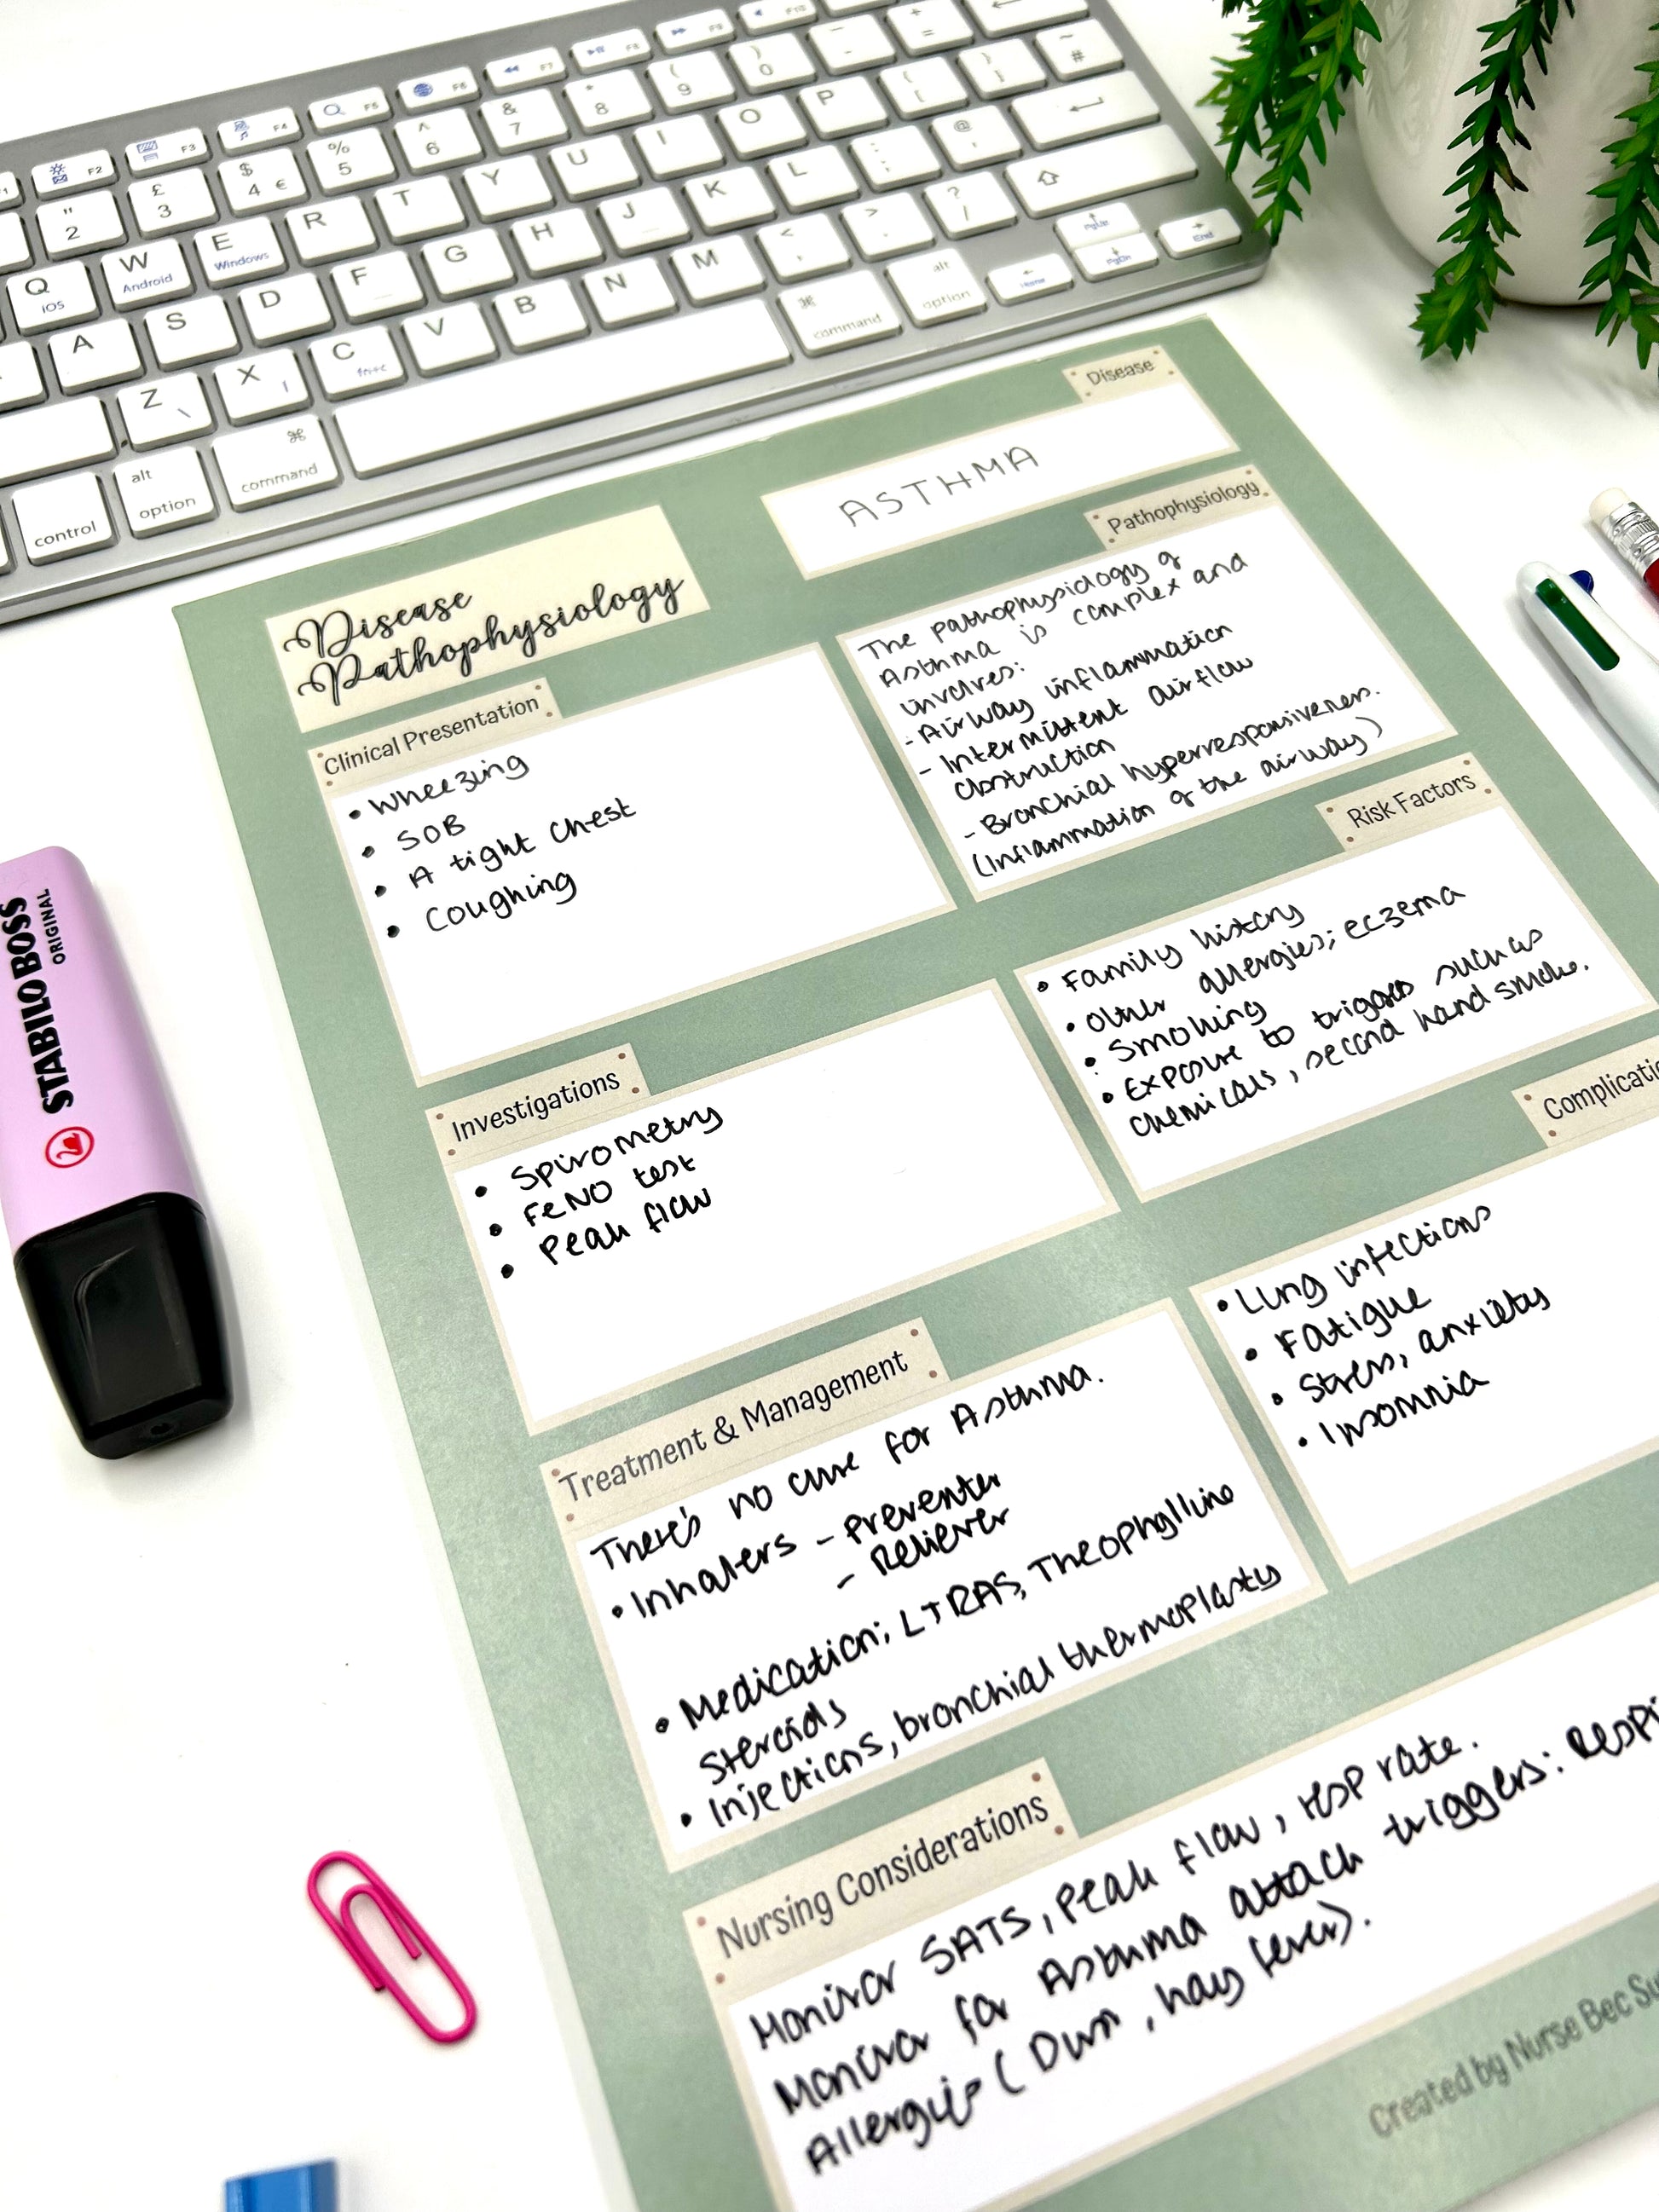 F1
F2
F3
F4
F5
F6
F7
F8
F9
F10
" 2
£ 3
$ 4 €
% 5
^ 6
& 7
* 8
( 9
) 0
_ -
+ =
Q iOS
W Android
E Windows
R
T
Y
U
I
O
P
{ [
} ]
~ #
A
S
D
F
G
H
J
K
L
: ;
@ '
Z \
X
C
V
B
N
M
< ,
> .
? /
PgUp
Home
PgDn
End
control
alt option
command
command
alt option
Disease
Pathophysiology
Disease
ASTHMA
Clinical Presentation
• Wheezing
• SOB
• A tight chest
• Coughing
Pathophysiology
The pathophysiology of
Asthma is complex and
involves:
- Airway inflammation
- Intermittent airflow
obstruction
- Bronchial hyperresponsiveness.
(Inflammation of the airway)
Risk Factors
• Family history
• Other allergies; eczema
• Smoking
• Exposure to triggers such as
chemicals, second hand smoke.
Investigations
• Spirometry
• FeNO test
• Peak flow
Complicatio
• Lung infections
• Fatigue
• Stress, anxiety
• Insomnia
Treatment & Management
There's no cure for Asthma.
• Inhalers - Preventer
- Reliever
• Medication; LTRAS, Theophylline
Steroids
• Injections, bronchial thermoplasty
Nursing Considerations
Monitor SATS, peak flow, resp rate.
Monitor for Asthma attack triggers: Respi
Allergies (Dust, hay fever).
Created by Nurse Bec Su
STABILO BOSS
ORIGINAL